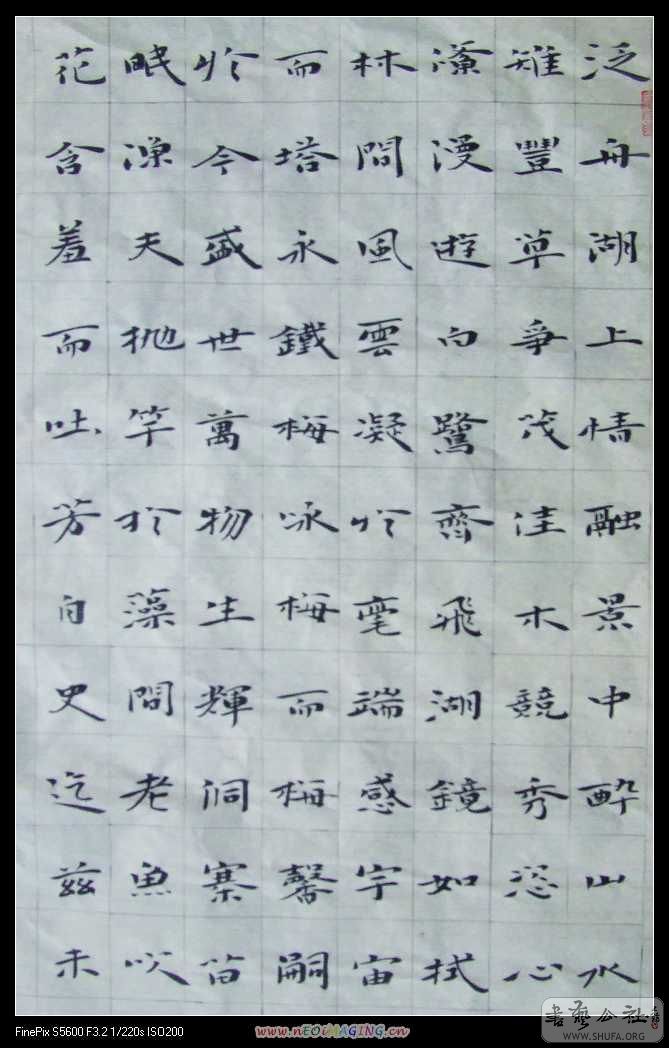 泛舟湖上情融景中醉山水
雉豐草爭茂佳木競秀恣心
漫遊白鷺齊飛湖鏡如拭
林間風雲凝於毫端感宇宙
而塔永鐵梅咏梅而梅馨嗣
於今盛世萬物生輝洞寨笛
眠漁夫拋竿於藻間老魚吹
花含羞而吐芳自史迄茲未
書藝公社
WWW.SHUFA.ORG
FinePix S5600 F3.2 1/220s ISO200
www.nEOiMAGING.cn